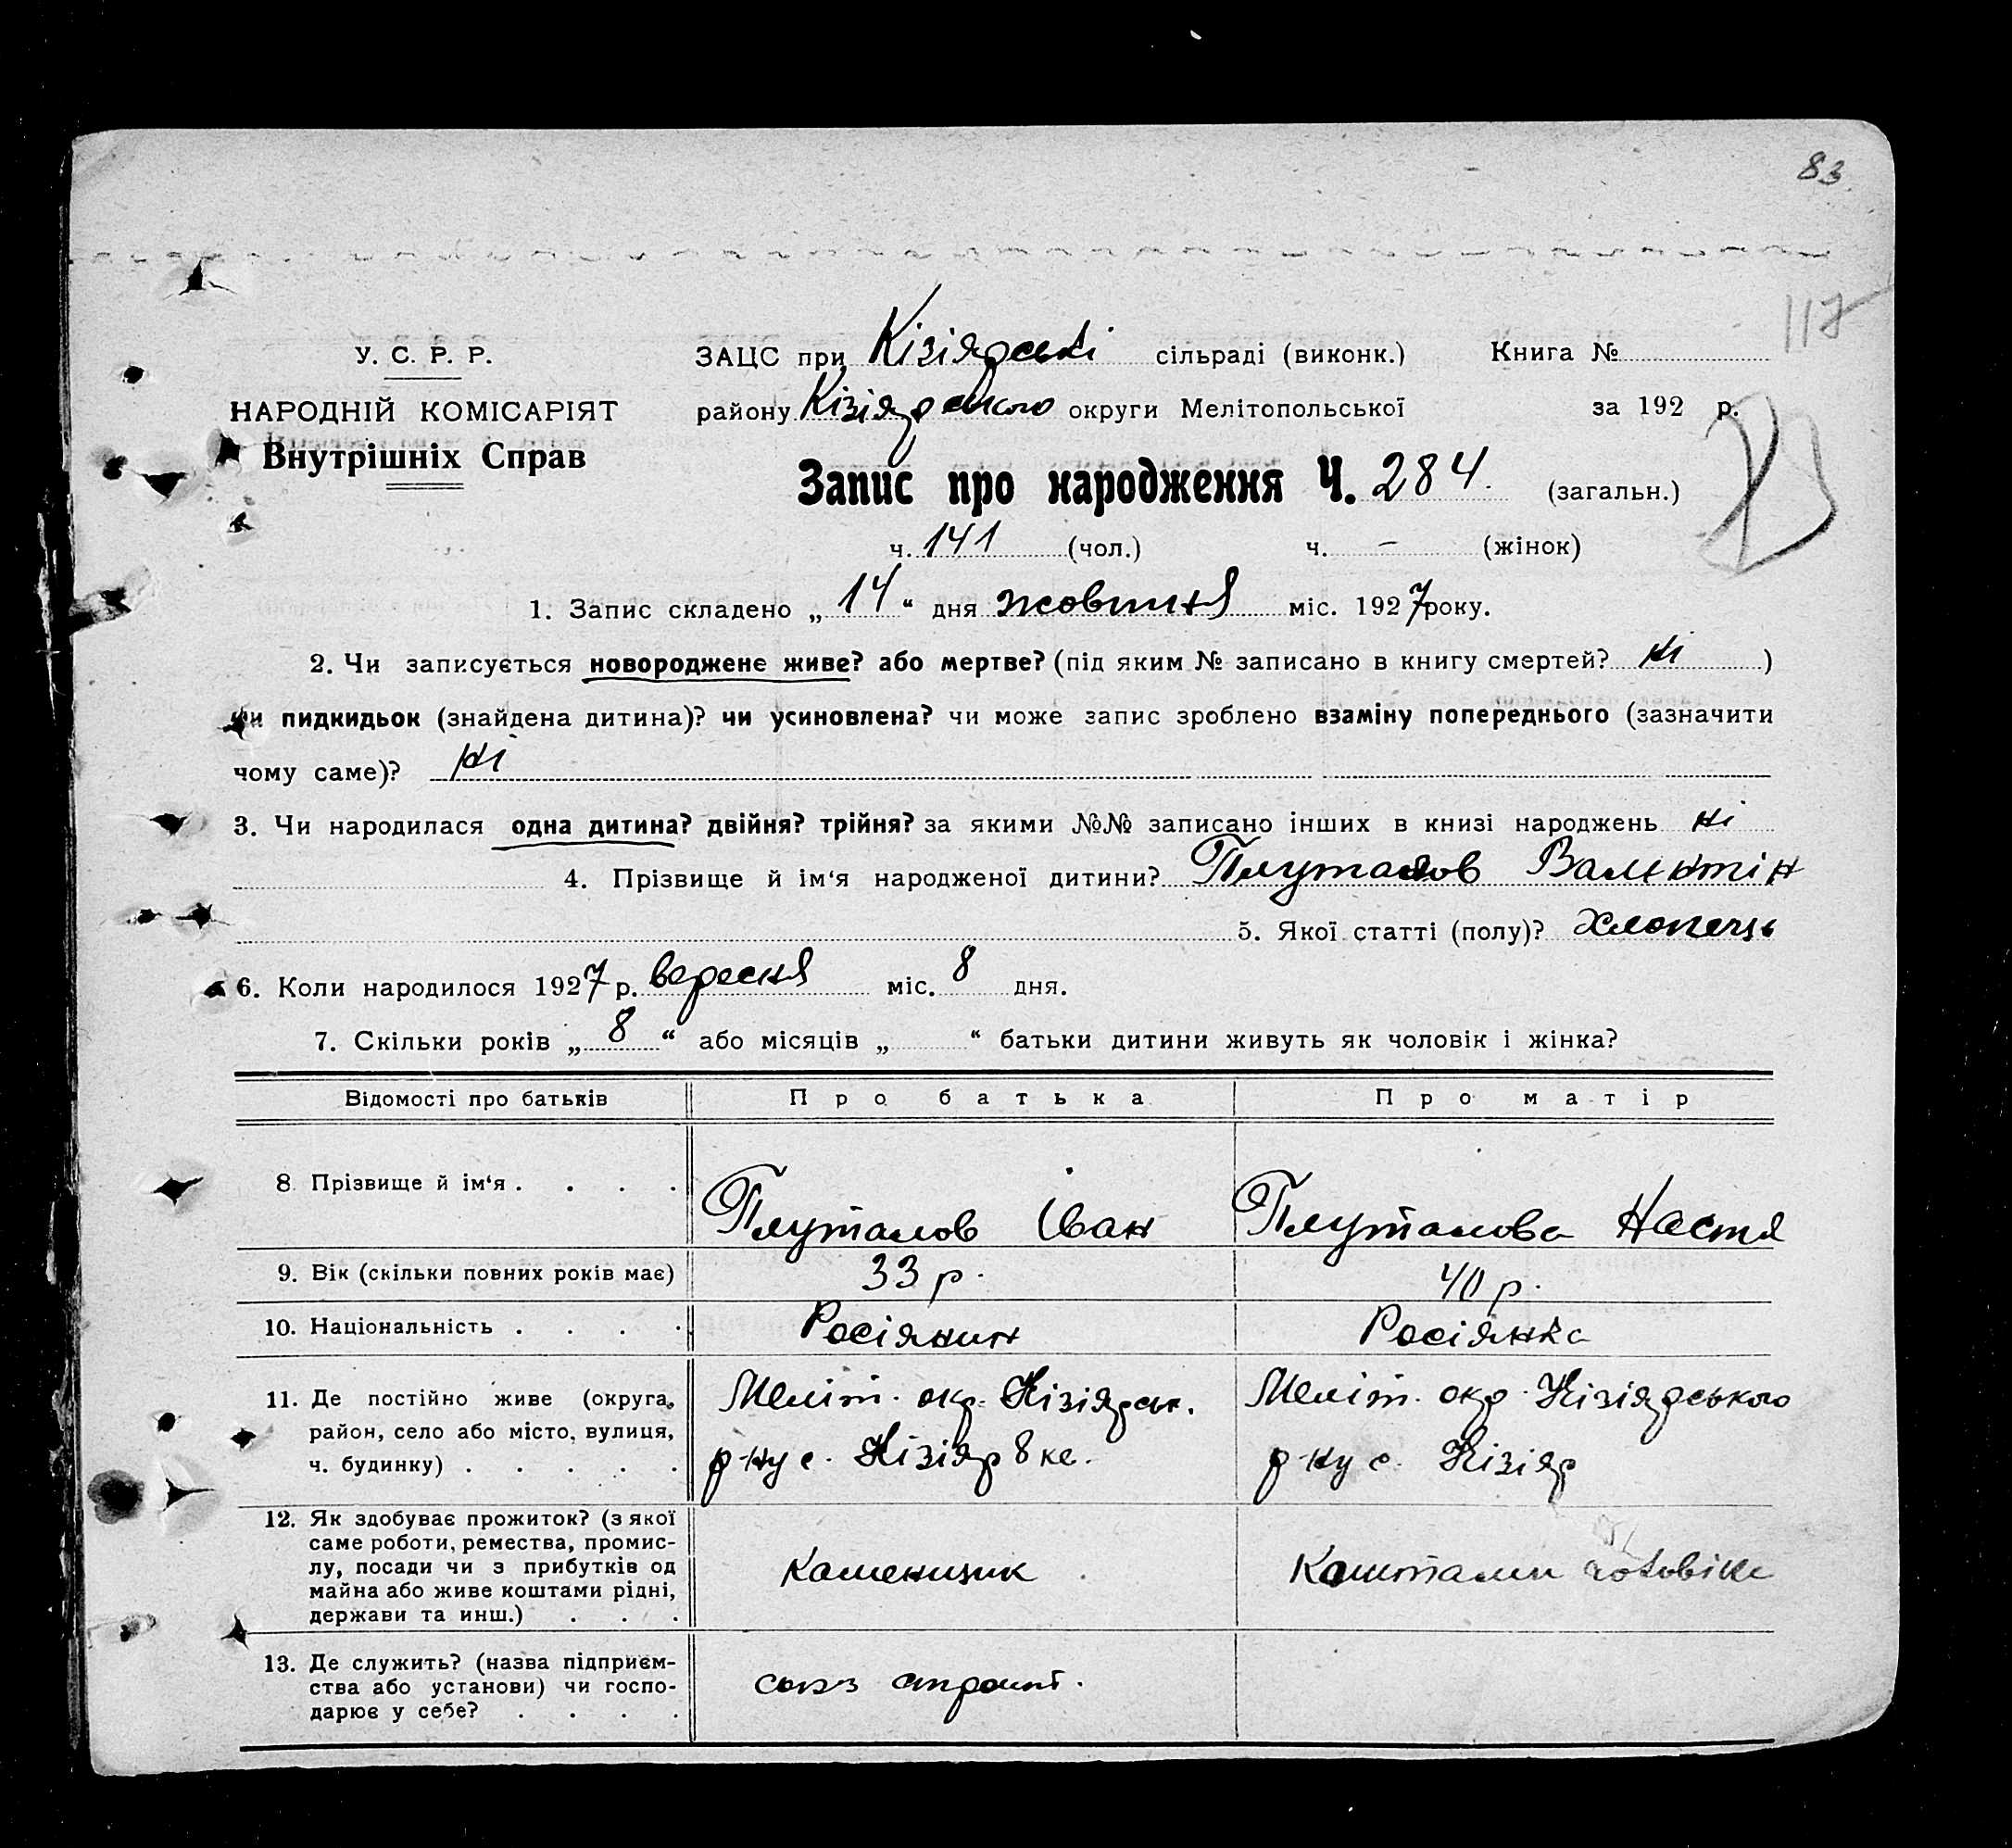 83
117
У. С. Р. Р.
НАРОДНІЙ КОМІСАРІЯТ
Внутрішніх Справ
ЗАЦС при Кізіярські сільраді (виконк.) Книга №
району Кізіярського округи Мелітопольської за 192 р.
Запис про народження Ч. 284. (загальн.)
ч. 141 (чол.) ч. – (жінок)
1. Запис складено „ 14 “ дня жовтня міс. 1927 року.
2. Чи записується новороджене живе? або мертве? (під яким № записано в книгу смертей? ні )
чи пидкидьок (знайдена дитина)? чи усиновлена? чи може запис зроблено взаміну попереднього (зазначити
чому саме)? ні
3. Чи народилася одна дитина? двійня? трійня? за якими №№ записано інших в книзі народжень ні
4. Прізвище й ім‘я народженої дитини? Плуталов Валентін
5. Якої статті (полу)? Хлопець
6. Коли народилося 1927 р. вересня міс. 8 дня.
7. Скільки років „ 8 “ або місяців „ “ батьки дитини живуть як чоловік і жінка?
Відомості про батьків Про батька Про матір
8 Прізвище й ім‘я . . . . Плуталов Іван Плуталова Настя
9. Вік (скільки повних років має) 33 р. 40 р.
10. Національність . . . . Росіянин Росіянка
11. Де постійно живе (округа, Меліт. окр. Кізіярськ. Меліт. окр. Кізіярського
район, село або місто, вулиця, р-ну с. Кізіяр р-ну с. Кізіяр
ч. будинку) . . . . .
12. Як здобуває прожиток? (з якої
саме роботи, ремества, промис-
лу, посади чи з прибутків од Каменщик Коштами чоловіка
майна або живе коштами рідні,
держави та инш.) . . .
13. Де служить? (назва підприєм-
ства або установи) чи госпо- союз строит.
дарює у себе? . . . .